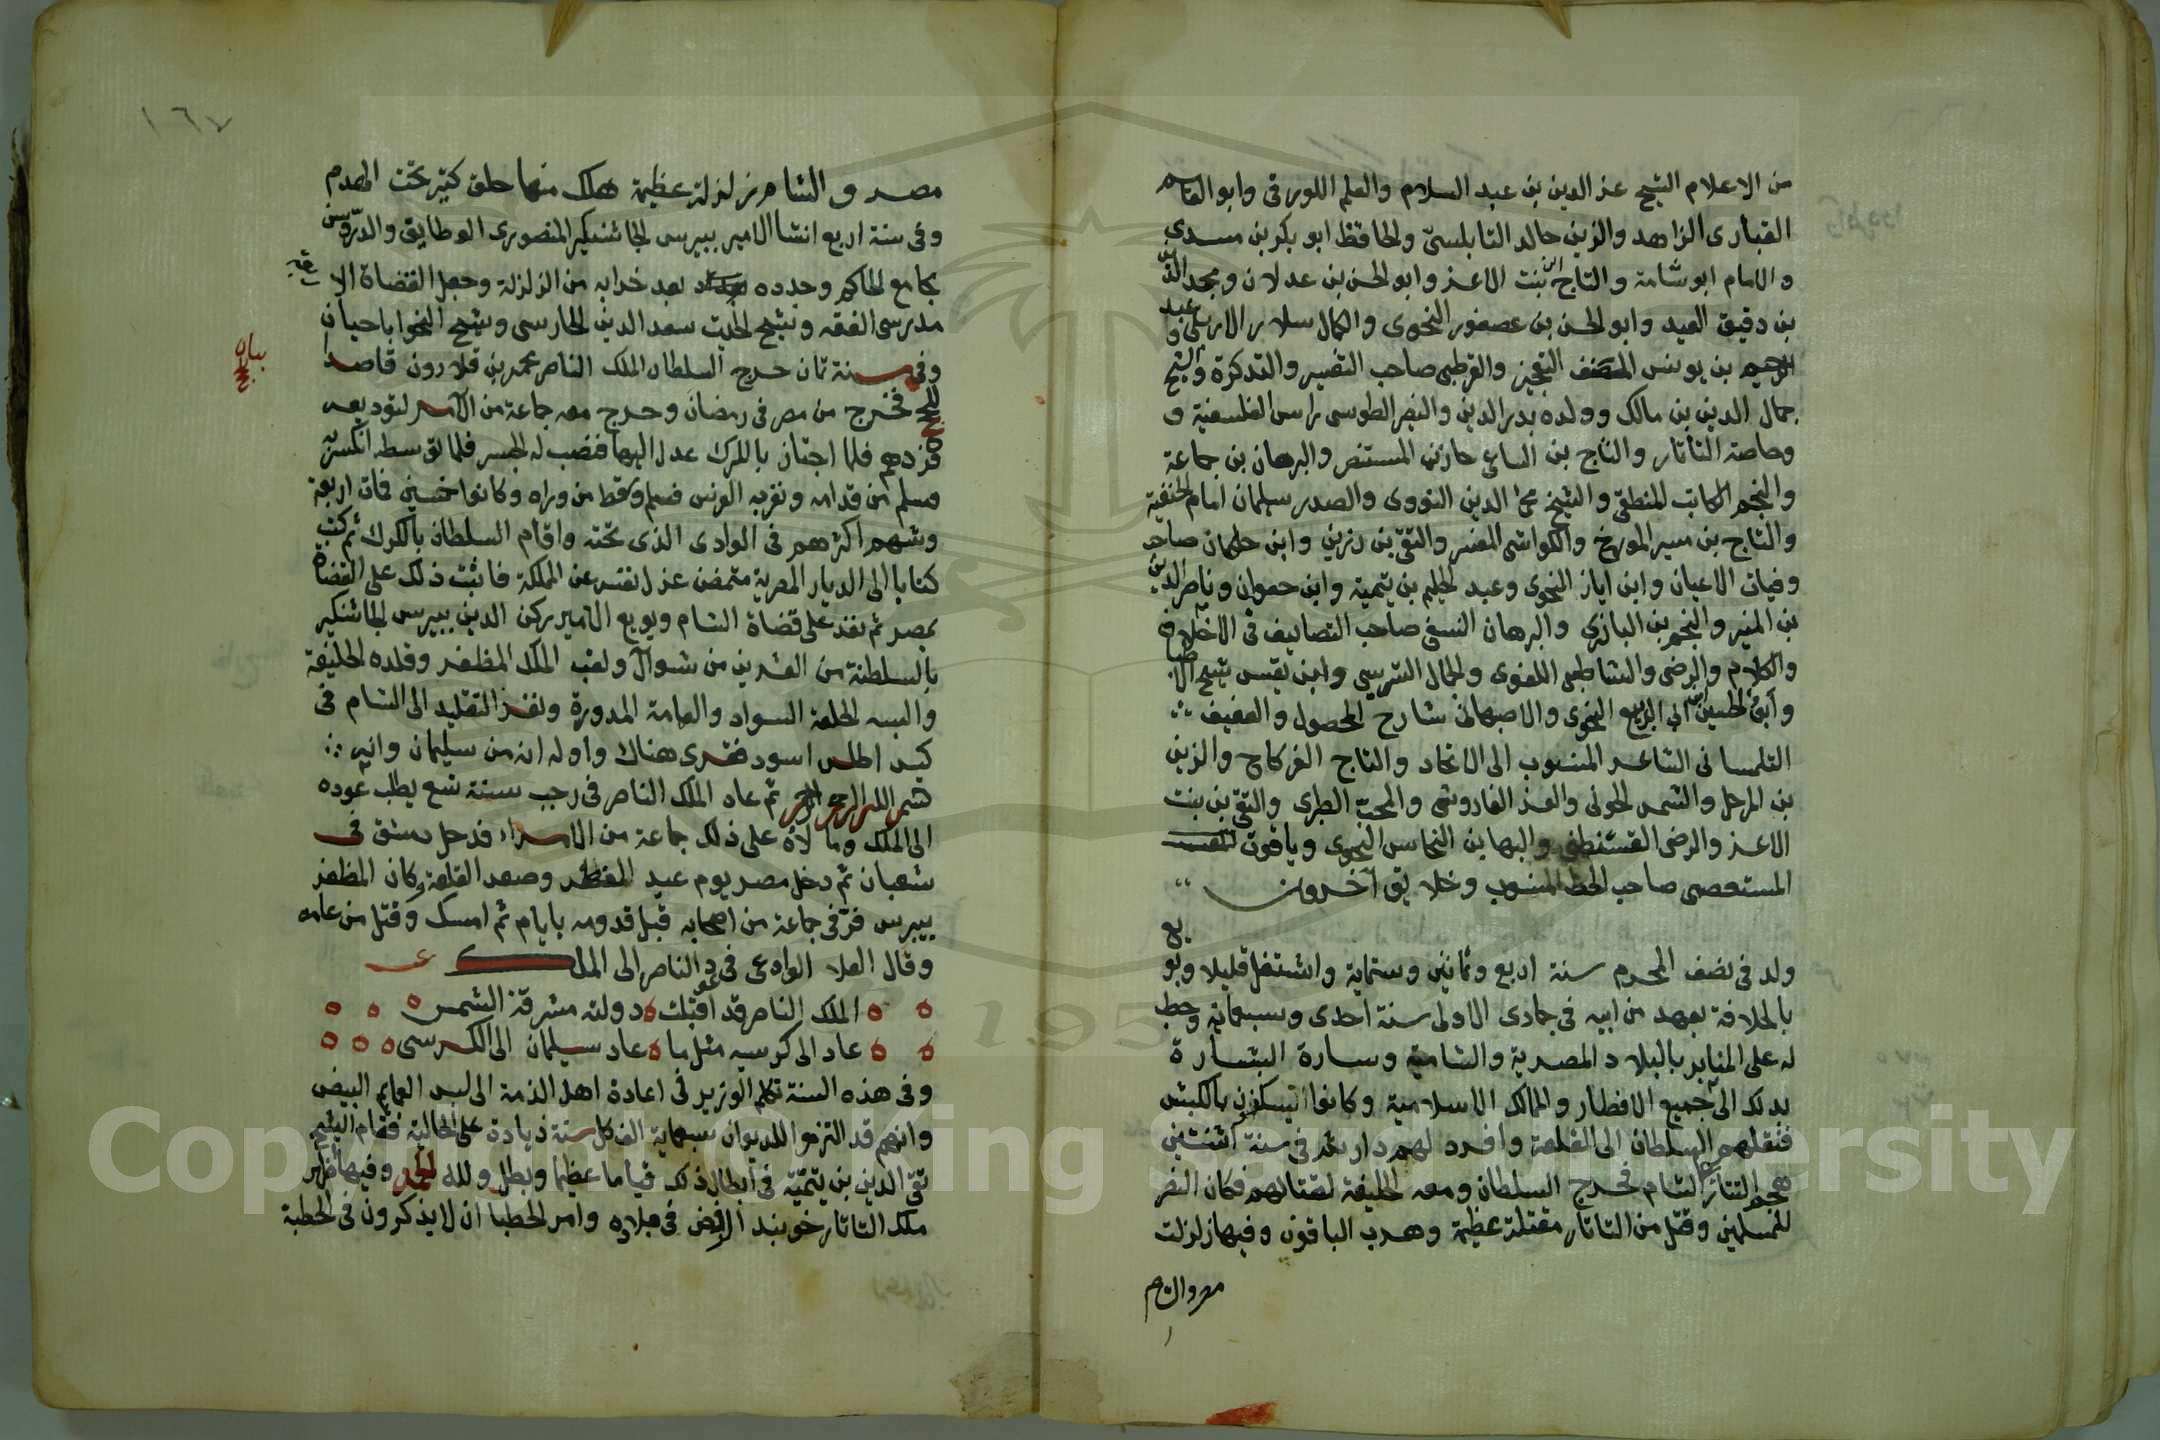 من الاعلام الشيخ عز الدين بن عبد السلام والعلم اللورقى وابو القاسم
القبارى الزاهد والزين خالد النابلسى والحافظ ابو بكر بن مسدي
والامام ابو شامة والتاج ابن بنت الاعز وابو الحسن بن عدلان ومجد الدين
بن دقيق العيد وابو الحسن بن عصفور النحوى والكمال سلار الاربلى وعبد
الرحيم بن يونس المصنف التعجيز والقرطبى صاحب التفسير والتذكرة والشيخ
جمال الدين بن مالك وولده بدر الدين والنصر الطوسى راس الفلسفية و
وخاصة التاتار والتاج بن الساعى خازن المستنصر والبرهان بن جماعة
والنجم الكاتب المنطقى والشيخ محى الدين النووى والصدر سليمان امام الحنفية
والتاج بن ميسر المورخ والكواشى المفسر والتقى بن رزين وابن خلكان صاحب
وفيات الاعيان وابن اياز النحوى وعبد الحليم بن تيمية وابن جعوان وناصر الدين
بن المنير والنجم بن البازرى والبرهان النسفى صاحب التصانيف فى الاخلاف
والكلام والرضى والشاطبى اللغوى والجمال الشريسى وابن نفيس شيخ الاطباء
وابو الحسين بن ابى الربيع النحوى والاصبهانى شارح المحصول والعفيف
التلمسانى الشاعر المنسوب الى الاتحاد والتاج الفركاح والزين
بن المرحل والشمس الخونى والعز الفاروثى والمحب الطبرى والتقى بن بنت
الاعز والرضى القسنطنى والبها بن النحاس النحوى وياقوت
المستعصمى صاحب الخط المنسوب وخلايق آخرون
ولد فى نصف المحرم سنة اربع وثمانين وستماية واشتغل قليلا وبويع
بالخلافة بعهد من ابيه فى جمادى الاولى سنة احدى وسبعماية وخطب
له على المنابر بالبلاد المصرية والشامية وسارة البشارة
بذلك الى جميع الاقطار والممالك الاسلامية وكانوا يسكنون بالكبش
فنقلهم السلطان الى القلعة وافرد لهم دار بعد فى سنة اثنتين
هجم التتار على الشام فخرج السلطان ومعه الخليفة لقتالهم فكان النصر
للمسلمين وقتل من التاتار مقتلة عظيمة وهرب الباقون وفيها زلزلت
مصر والشام
١٦٧
مصر والشام زلزلة عظيمة هلك منها خلق كثير تحت الهدم
وفى سنة اربع انشا الامير بيبرس الجاشنكير المنصورى الوظايف والدروس
بجامع الحاكم وجدده بعد خرابه من الزلزلة وجعل القضاة الا ربعة
مدرسى الفقه وشيخ الحديث سعد الدين الحارسى وشيخ النحو ابا حيان
وفى سنة ثمان خرج السلطان الملك الناصر محمد بن قلاوون قاصدا
للحج فخرج من مصر فى رمضان وخرج معه جماعة من الامر لتوديعه
فردهم فلما اجتاز بالكرك عدل اليها فنصب له الجسر فلما توسطه انكسر به
فسلم من قدامه ونفر به الفرس فسلم وسقط من وراه وكانوا خمسين فمات اربعة
وتهشم اكثرهم فى الوادى الذى تحته واقام السلطان بالكرك ثم كتب
كتابا الى الديار المصرية متضمن عزل نفسه عن المملكة فاثبت ذلك على القضاة
بمصر ثم نفذ على قضاة الشام وبويع الامير ركن الدين بيبرس الجاشنكير
بالسلطنة من العشرين من شوال ولقب الملك المظفر وقلده الخليفة
والبسه الخلعة السواد والعمامة المدورة ونفذ التقليد الى الشام فى
كيس اطلس اسود فقرى هناك واوله انه من سليمان وانه
بسم الله الرحمن الرحيم ثم عاد الملك الناصر فى رجب سنة تسع يطلب عوده
الى الملك ومالأه على ذلك جماعة من الامراء فدخل دمشق فى
شعبان ثم دخل مصر يوم عيد الفطر وصعد القلعة وكان المظفر
بيبرس فر فى جماعة من اصحابه قبل قدومه بايام ثم امسك وقتل من عامه
وقال العلا الوداعى فى عود الناصر الى الملك
الملك الناصر قد اقبلت ه دولته مشرقة الشمس
عاد الى كرسيه مثل ما ه عاد سليمان الى الكرسى
وفى هذه السنة تكلم الوزير فى اعادة اهل الذمة الى لبس العمايم البيض
وانهم قد التزموا للديوان سبعماية الف كل سنة زيادة على الجالية فقام الشيخ
تقى الدين بن تيمية فى ابطال ذلك قياما عظيما وبطل ولله الحمد وفيها ظهر
ملك التاتار خوبند الرفض فى بلاده وامر الخطبا ان لا يذكرون فى الخطبة
بيان
Copyright © King Saud University
195